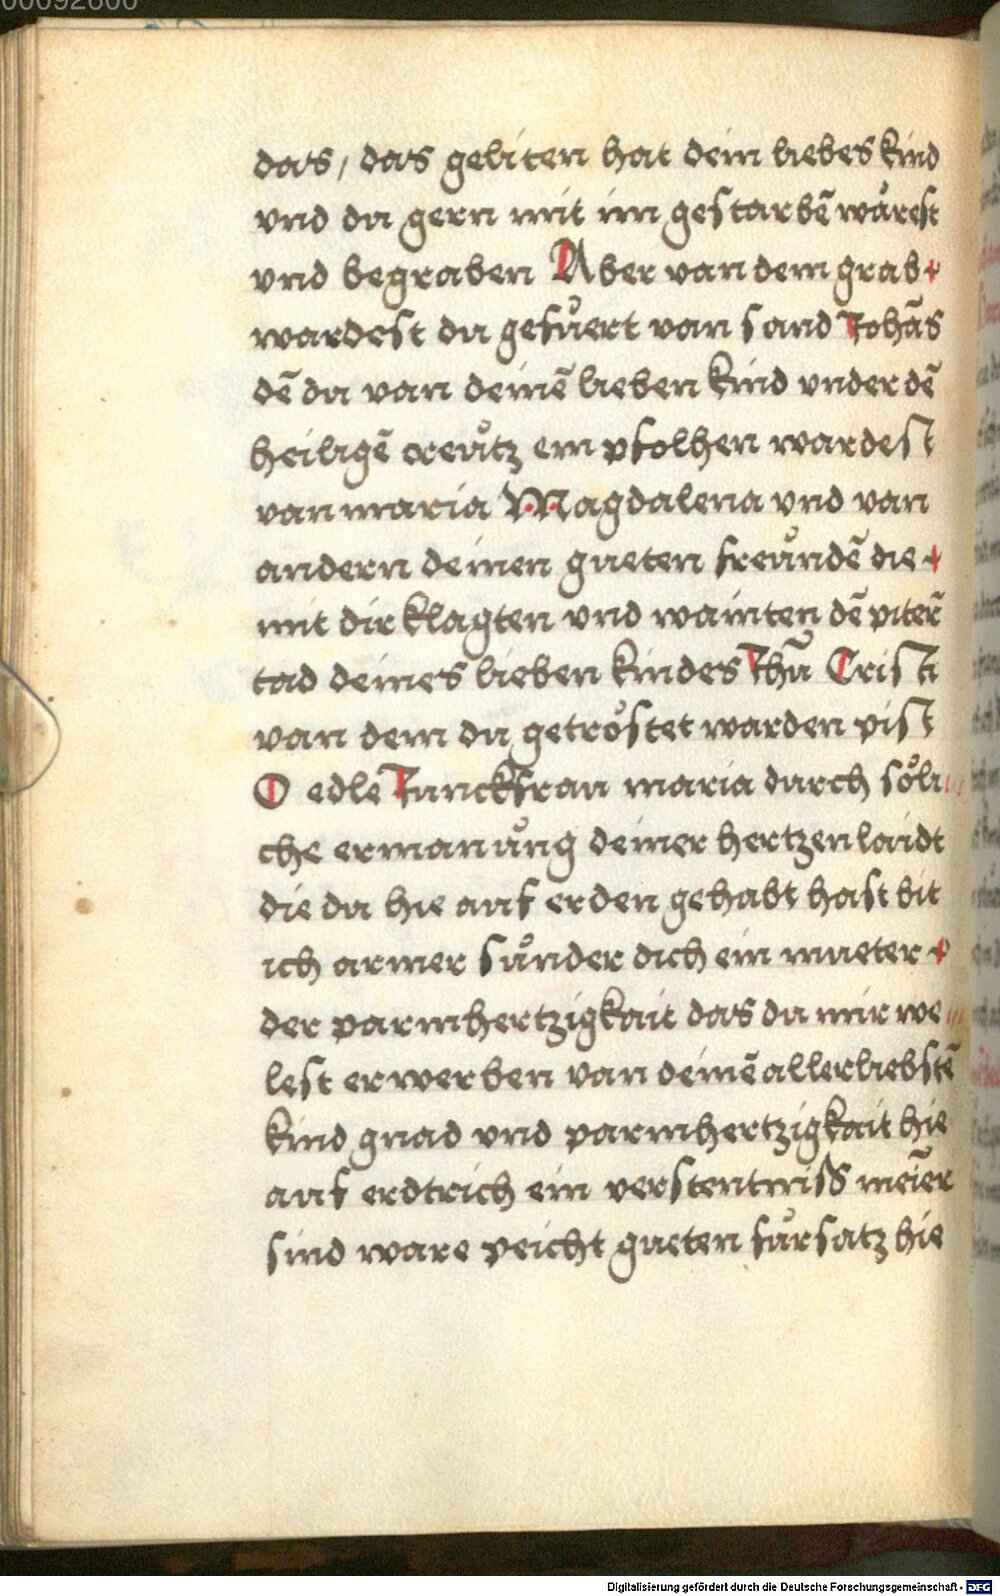 00092800
das / das geliten hat dein liebes kind
vnd du gern mit im gestarbē wårest
vnd begraben Aber van dem grab
wardest du gefůert van sand Johās
dē du van deinē lieben kind vnder dē
heiligē creůtz empfolhen wardest
van maria Magdalena vnd van
andern deinen gueten freůndē die
mit dir klagten vnd wainten dē piterñ
tad deines lieben kindes Jhū Cristi
van dem du getrőstet warden pist
O edle Junckfrau maria durch sőli
che ermanůng deiner hertzenlaidt
die du hie auf erden gehabt hast bit
ich armer sůnder dich ein mueter
der parmhertzigkait das du mir we
lest erwerben van deinē allerliebstē
kind gnad vnd parmhertzigkait hie
auf erdtrich ein verstentniss meīer
sind ware peicht gueten fůrsatz hie
Digitalisierung gefördert durch die Deutsche Forschungsgemeinschaft - DFG